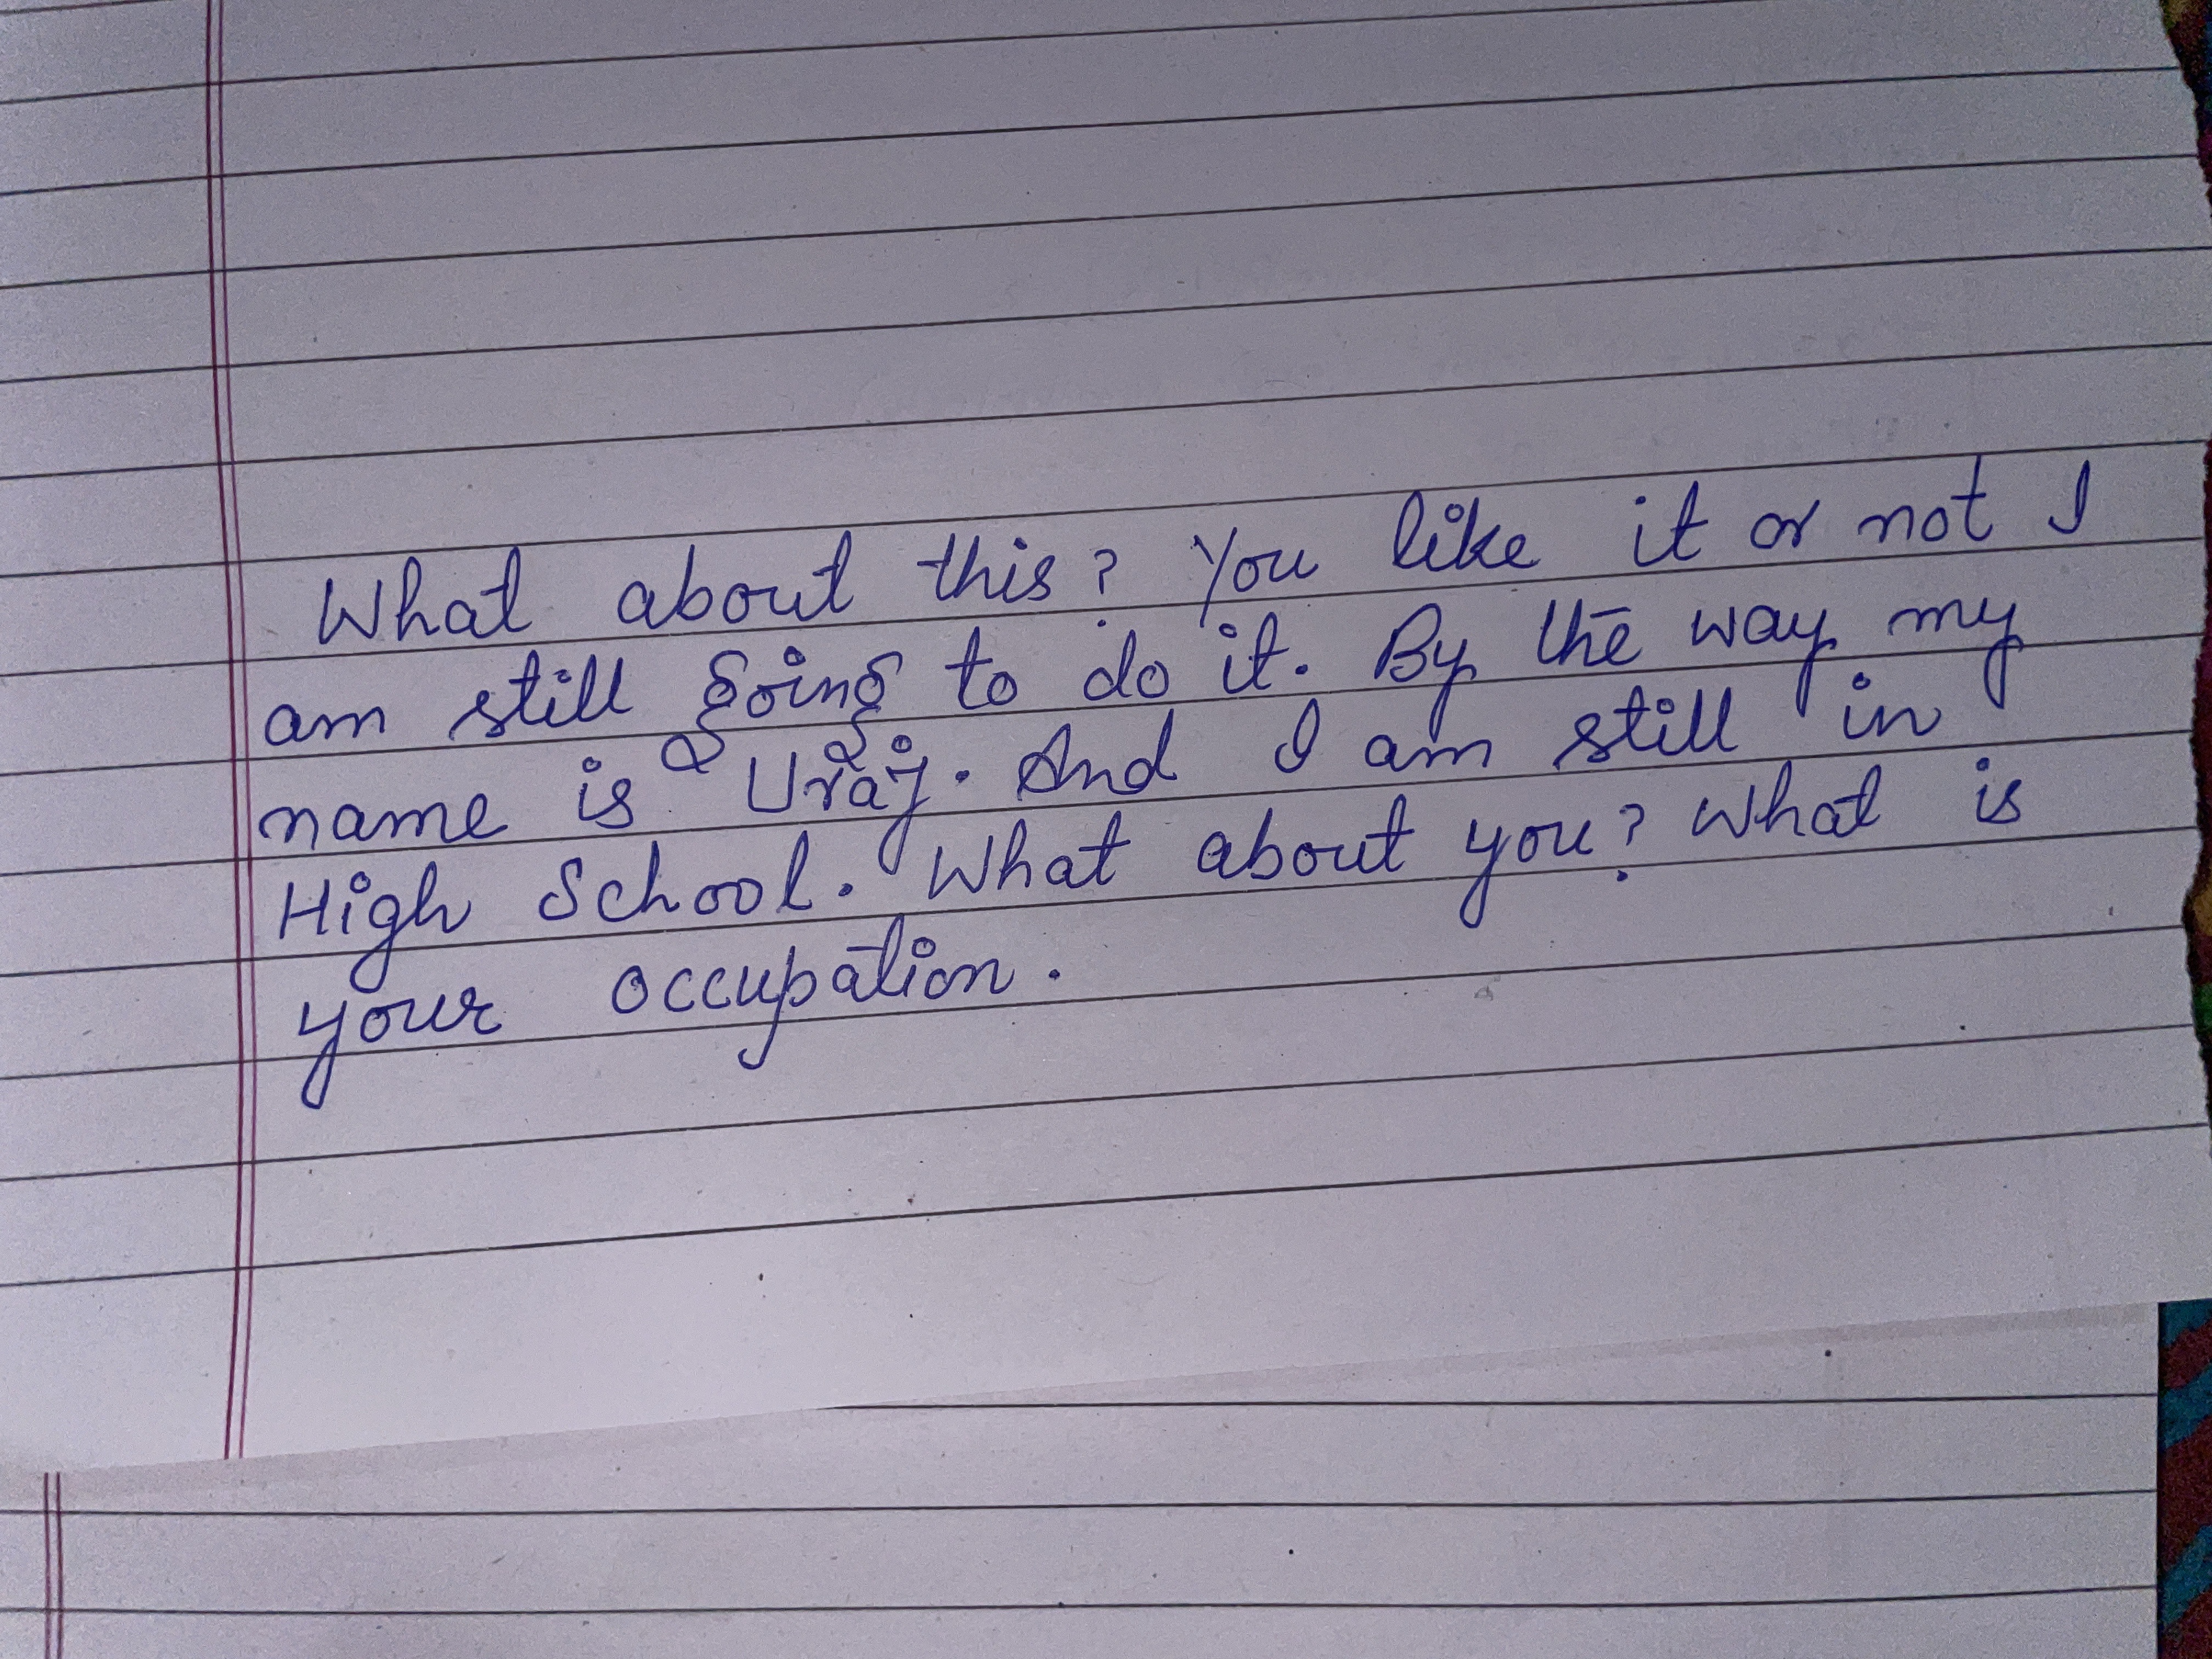 What about this? You like it or not I
am still going to do it. By the way my
name is Uraj. And I am still in
High School. What about you? What is
your occupation.